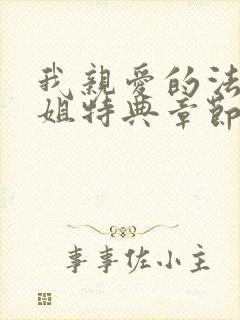 我親愛的法
姐特典章節
事事佐小主